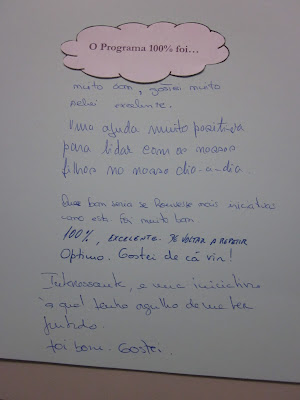 O Programa 100% foi...
muito bom, gostei muito
excelente.
Uma ajuda muito positiva
para lidar com os nossos
filhos no nosso dia-a-dia.
Que bom seria se houvesse mais iniciativas
como esta. Foi muito bom
100%, EXCELENTE. A VOLTAR A REPETIR
Optimo. Gostei de cá vir!
Interessante, e uma iniciativa
à qual tenho orgulho de me ter
juntado.
foi bom. Gostei.